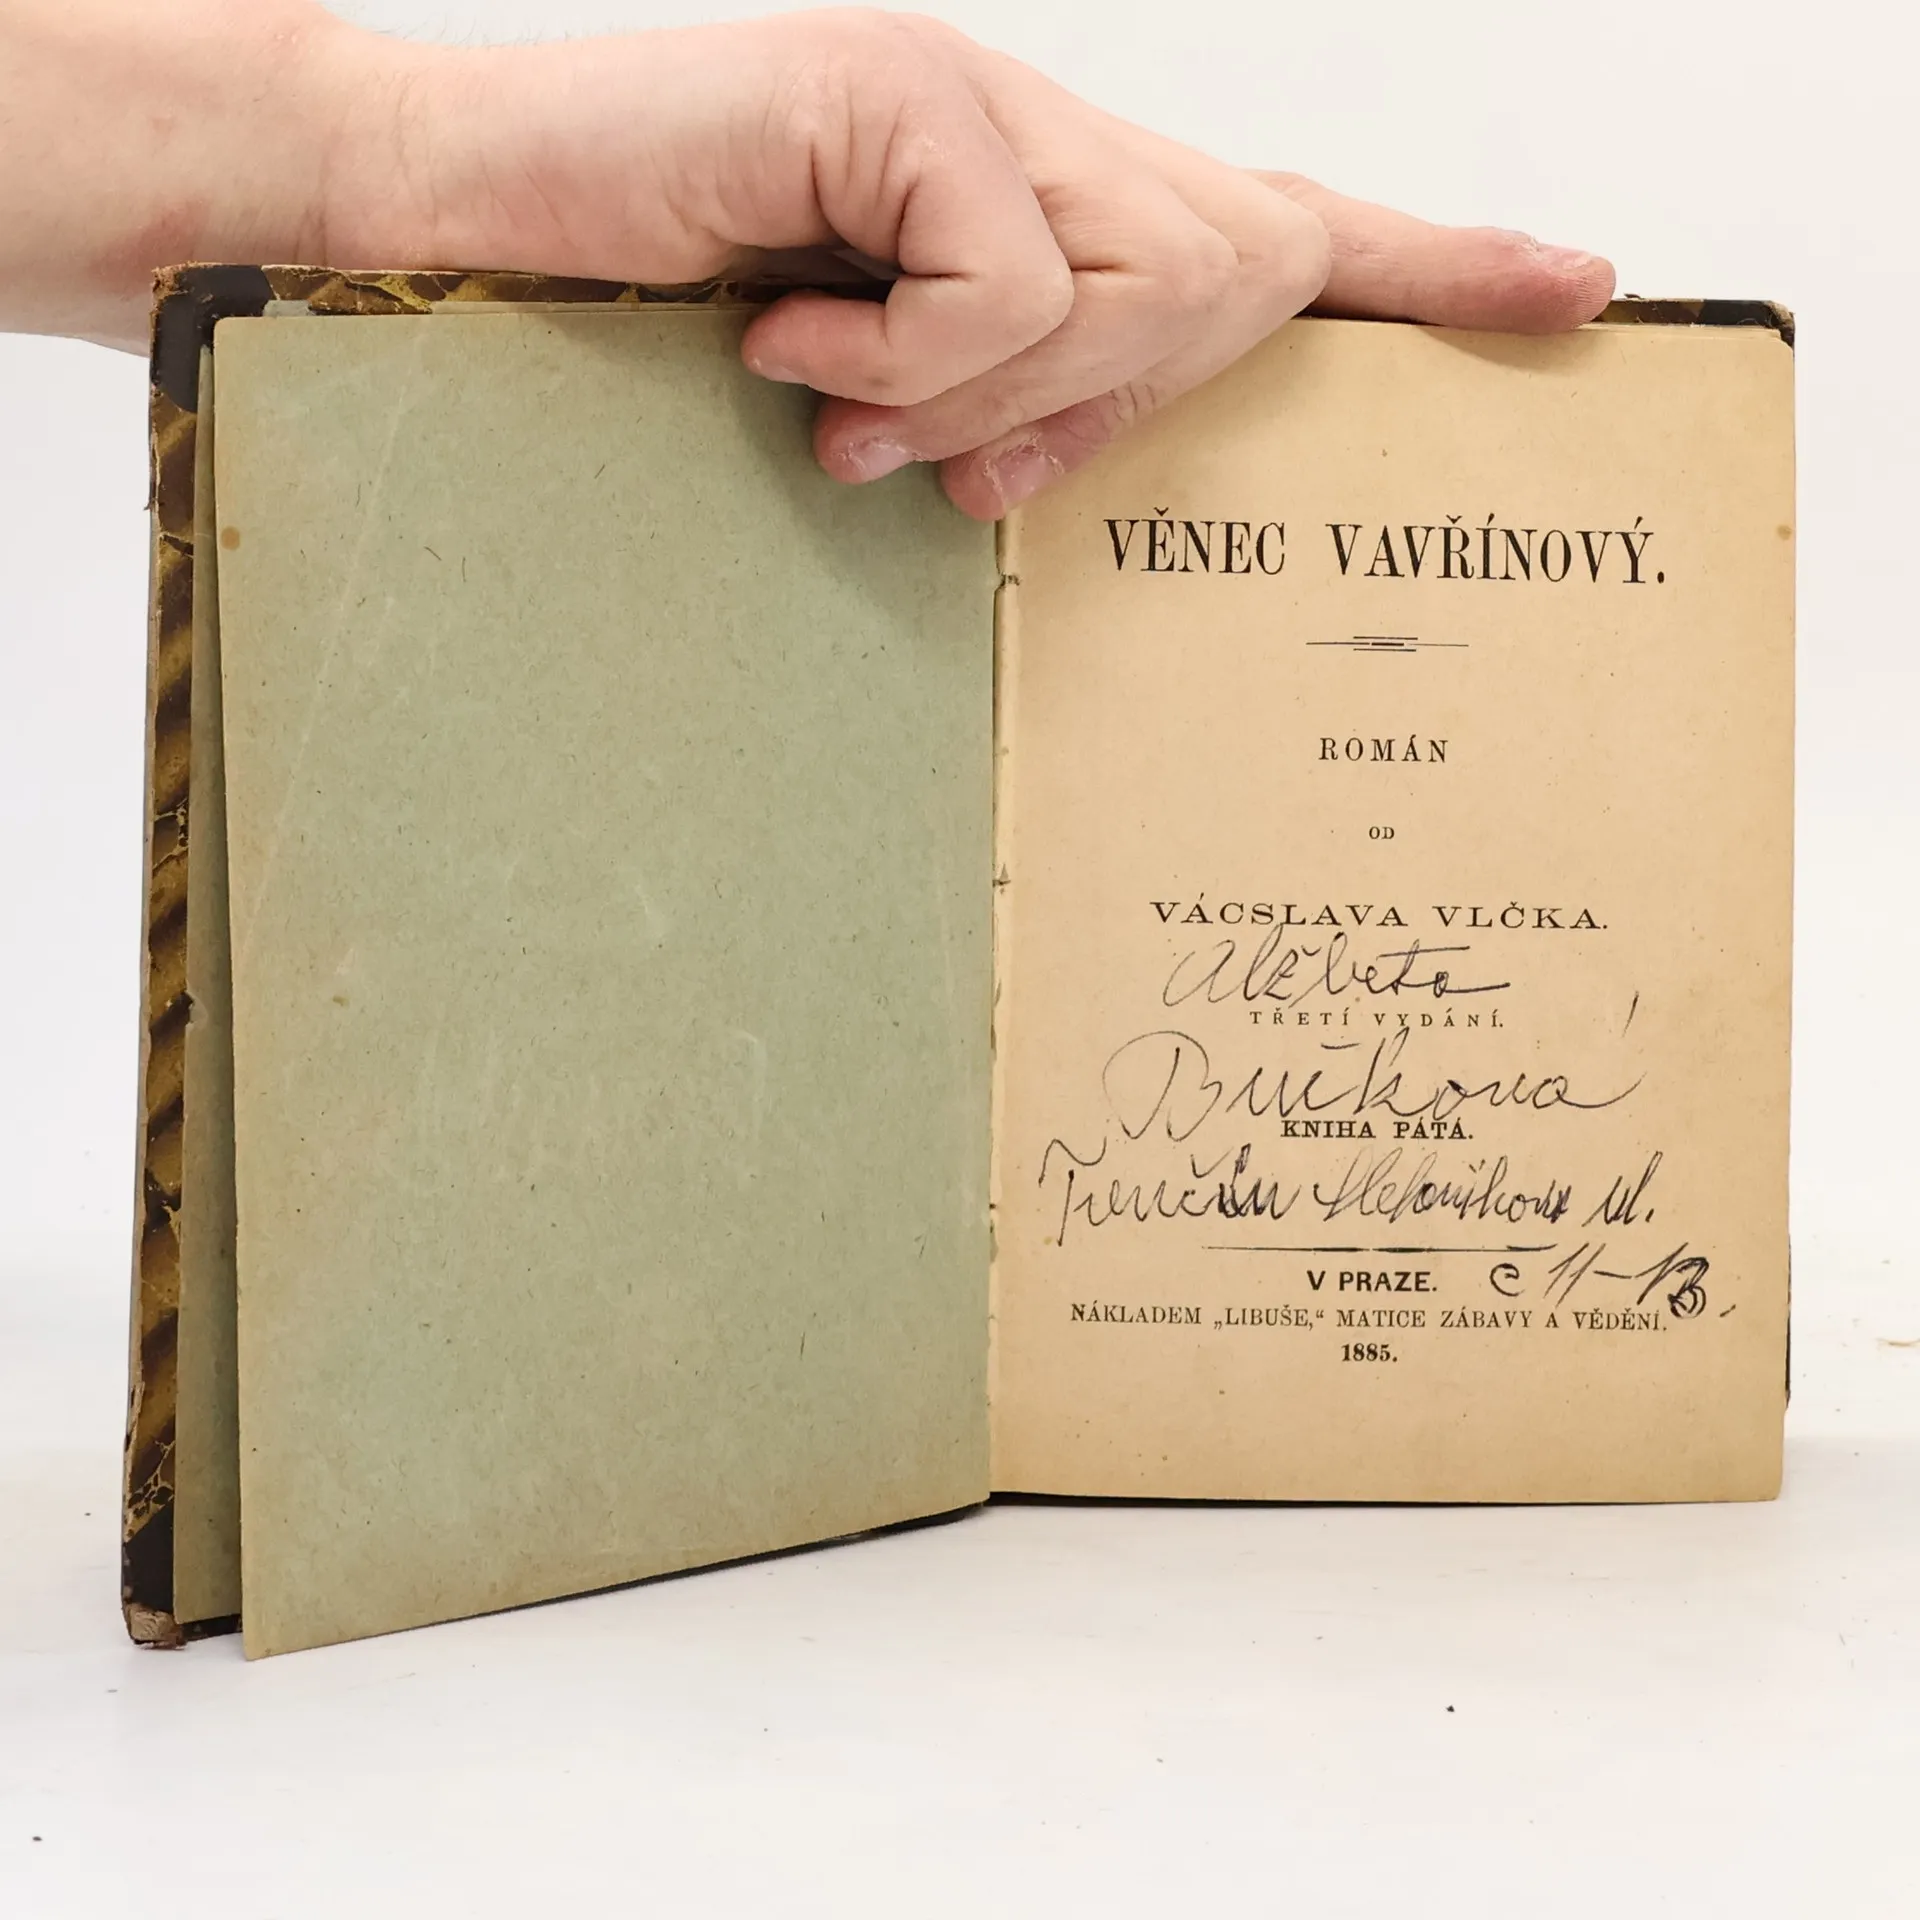 VĚNEC VAVŘÍNOVÝ.
ROMÁN
OD
VÁCSLAVA VLČKA.
Alžbeta
TŘETÍ VYDÁNÍ.
Bučková
KNIHA PÁTÁ.
Trenčín ul.
V PRAZE. č 11-13.
NÁKLADEM „LIBUŠE,“ MATICE ZÁBAVY A VĚDĚNÍ.
1885.